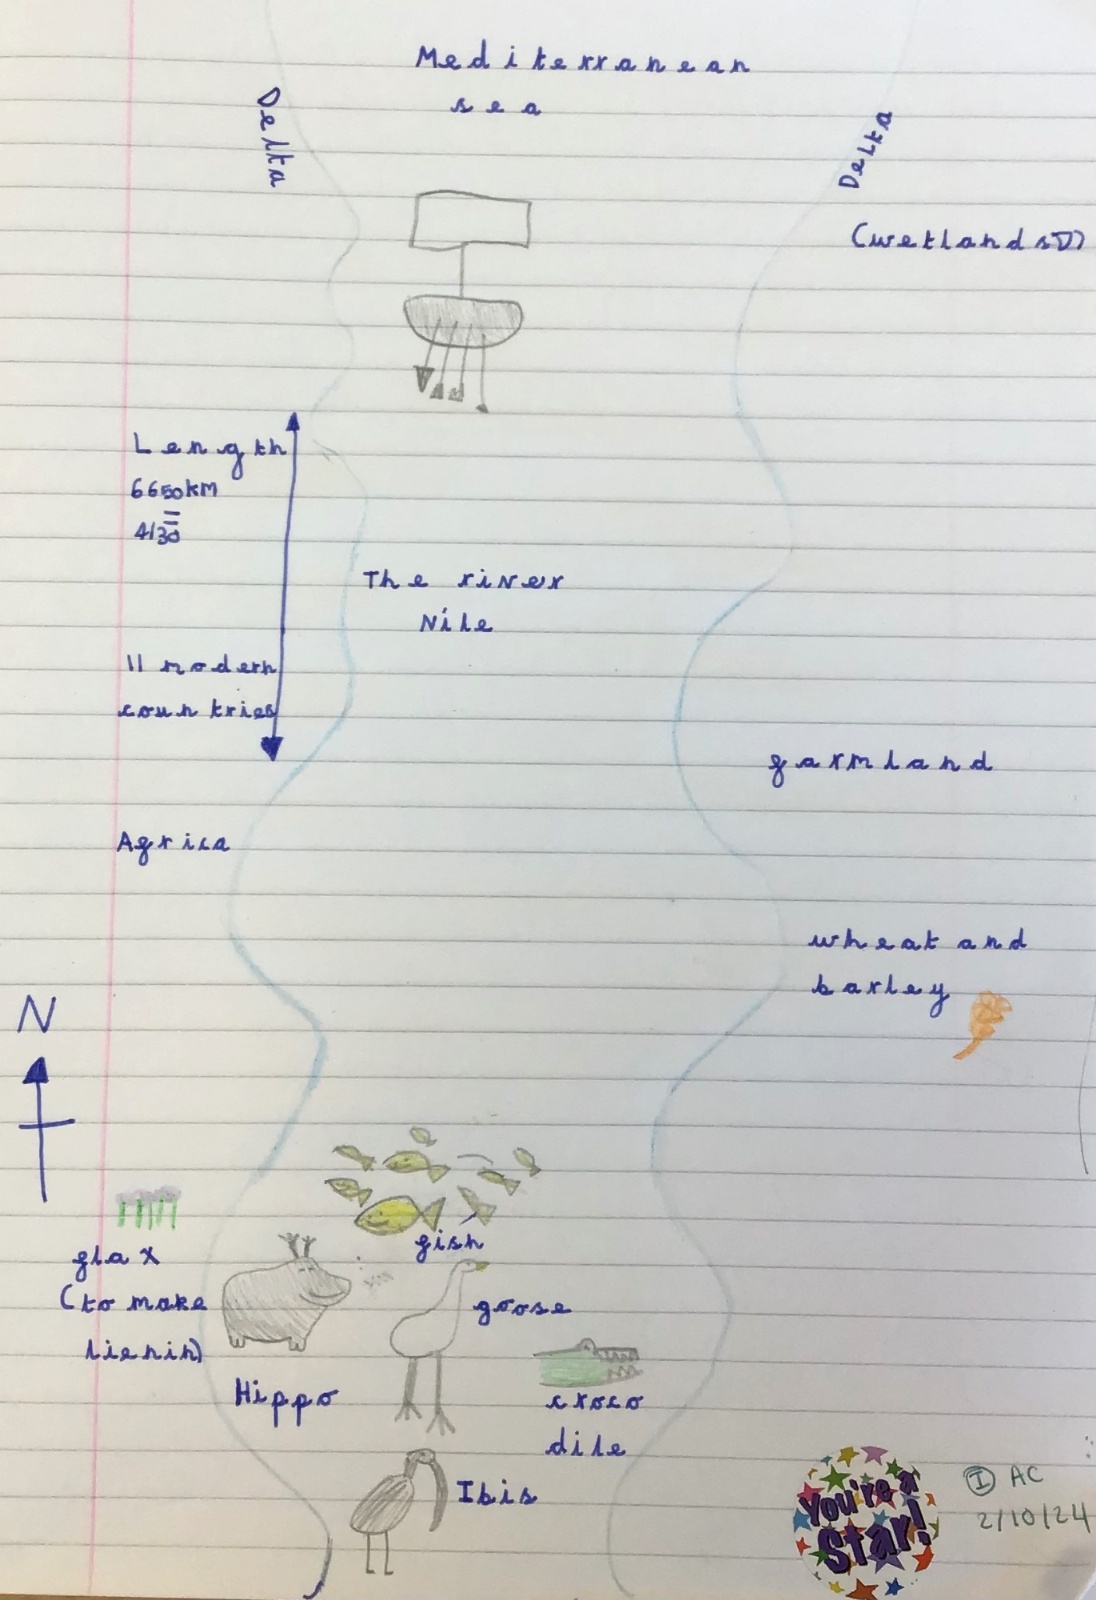 Mediterranean
sea
Delta
Delta
(wetlands)
Length
6650km
4130
The river
Nile
11 modern
countries
farmland
Africa
wheat and
barley
N
fish
flax
(to make
lienin)
goose
Hippo
croco
dile
Ibis
You're a
Star!
I AC
2/10/24